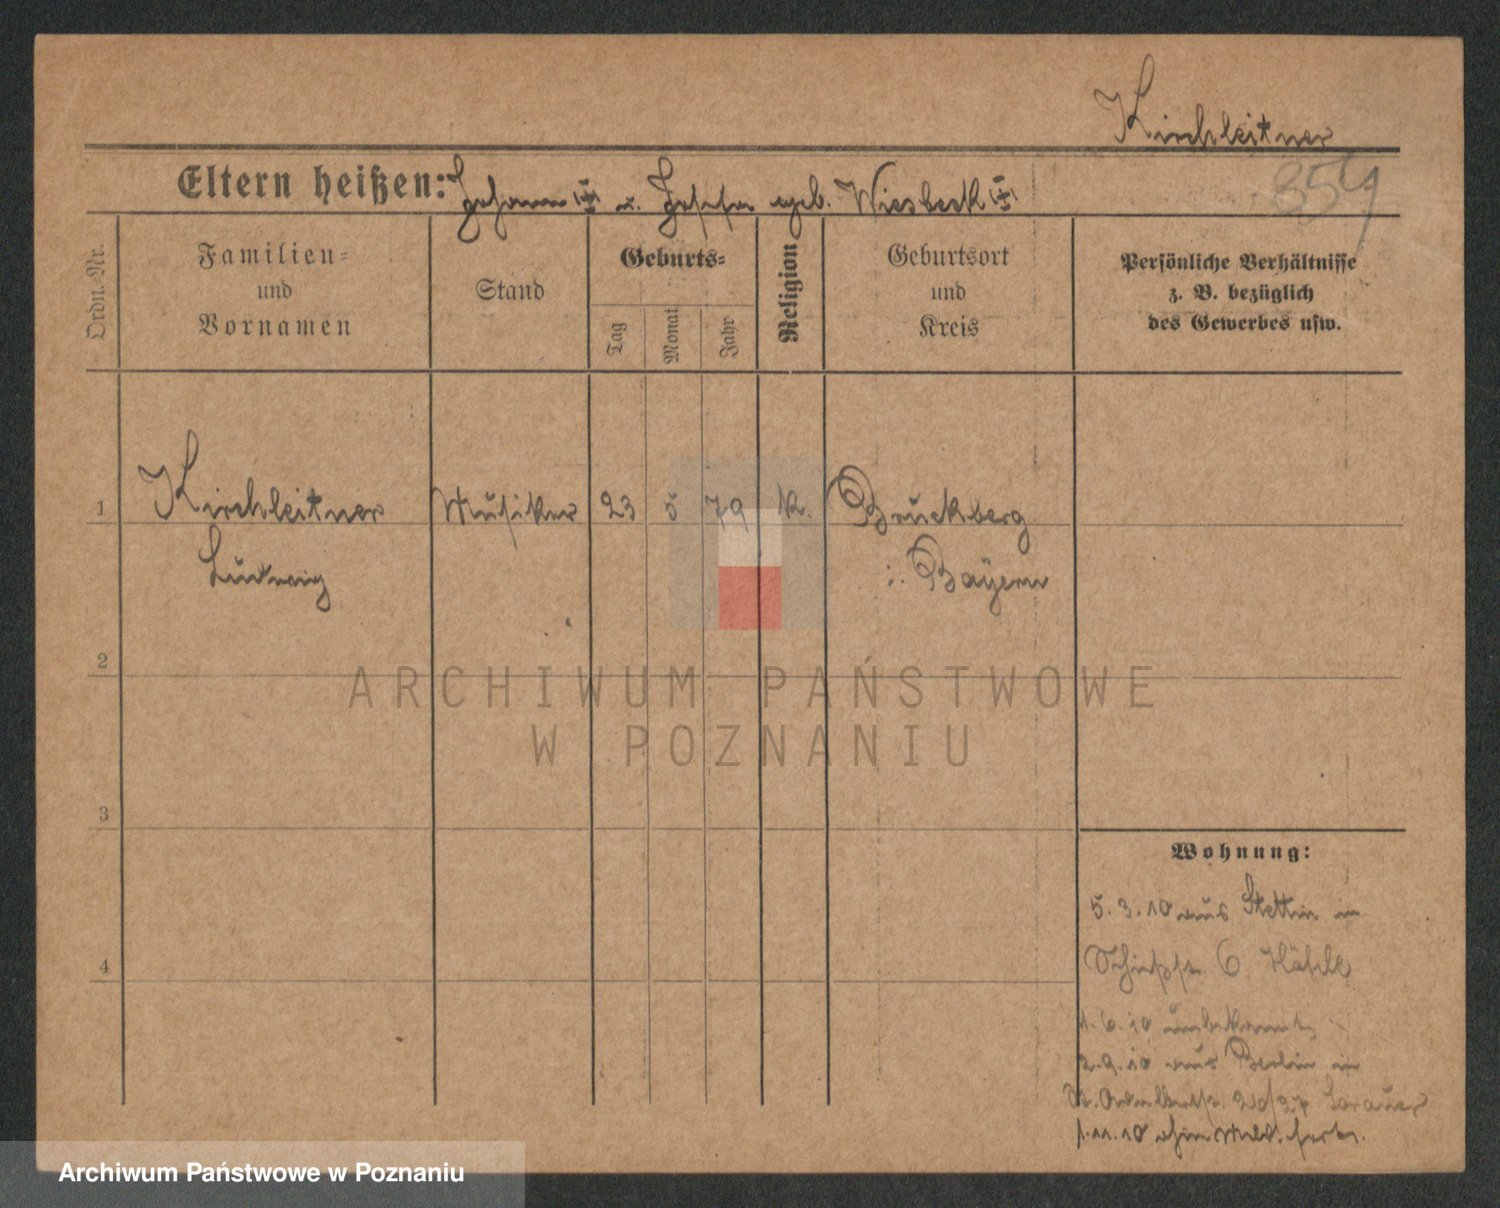 Kirchleitner
Eltern heißen: Johann (†) u. Josefa geb. Wiesbeck (†)
354
Ordn.-Nr.
Familien-
und
Vornamen
Stand
Geburts-
Tag
Monat
Jahr
Religion
Geburtsort
und
Kreis
Persönliche Verhältnisse
z. B. bezüglich
des Gewerbes usw.
1 Kirchleitner Musiker 23 5 79 k. Bruckberg
Ludwig i. Bayern
2
ARCHIWUM PAŃSTWOWE
W POZNANIU
3
Wohnung:
5.3.10 aus Stettin in
6
4
1.6.10 unbekannt
2.9.10 aus Berlin in
St. Adalbertstr. 26/27 Sorauer
1.11.10 ohne Meld. fort.
Archiwum Państwowe w Poznaniu